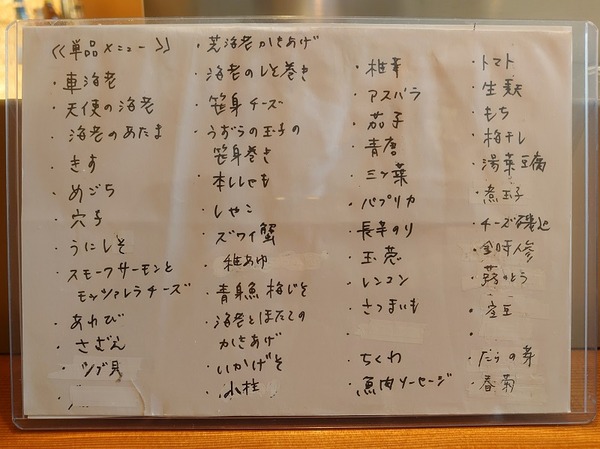 《単品メニュー》
・車海老
・天使の海老
・海老のあたま
・きす
・めごち
・穴子
・うにしそ
・スモークサーモンと
モッツァレラチーズ
・あわび
・さざえ
・ツブ貝
・芝海老かきあげ
・海老のしそ巻き
・笹身チーズ
・うずらの玉子の
笹身巻き
・本ししゃも
・しゃこ
・ズワイ蟹
稚あゆ
・青身魚梅じそ
・海老とほたての
かきあげ
・いかげそ
・小柱
・椎茸
・アスパラ
・茄子
・青唐
・三ッ葉
・パプリカ
・長芋のり
・玉葱
・レンコン
・さつまいも
・ちくわ
・魚肉ソーセージ
・トマト
・生麩
・もち
・梅干し
・湯葉豆腐
・煮玉子
・チーズ磯辺
・金時人参
・蕗のとう
・空豆
・
・たらの芽
・春菊